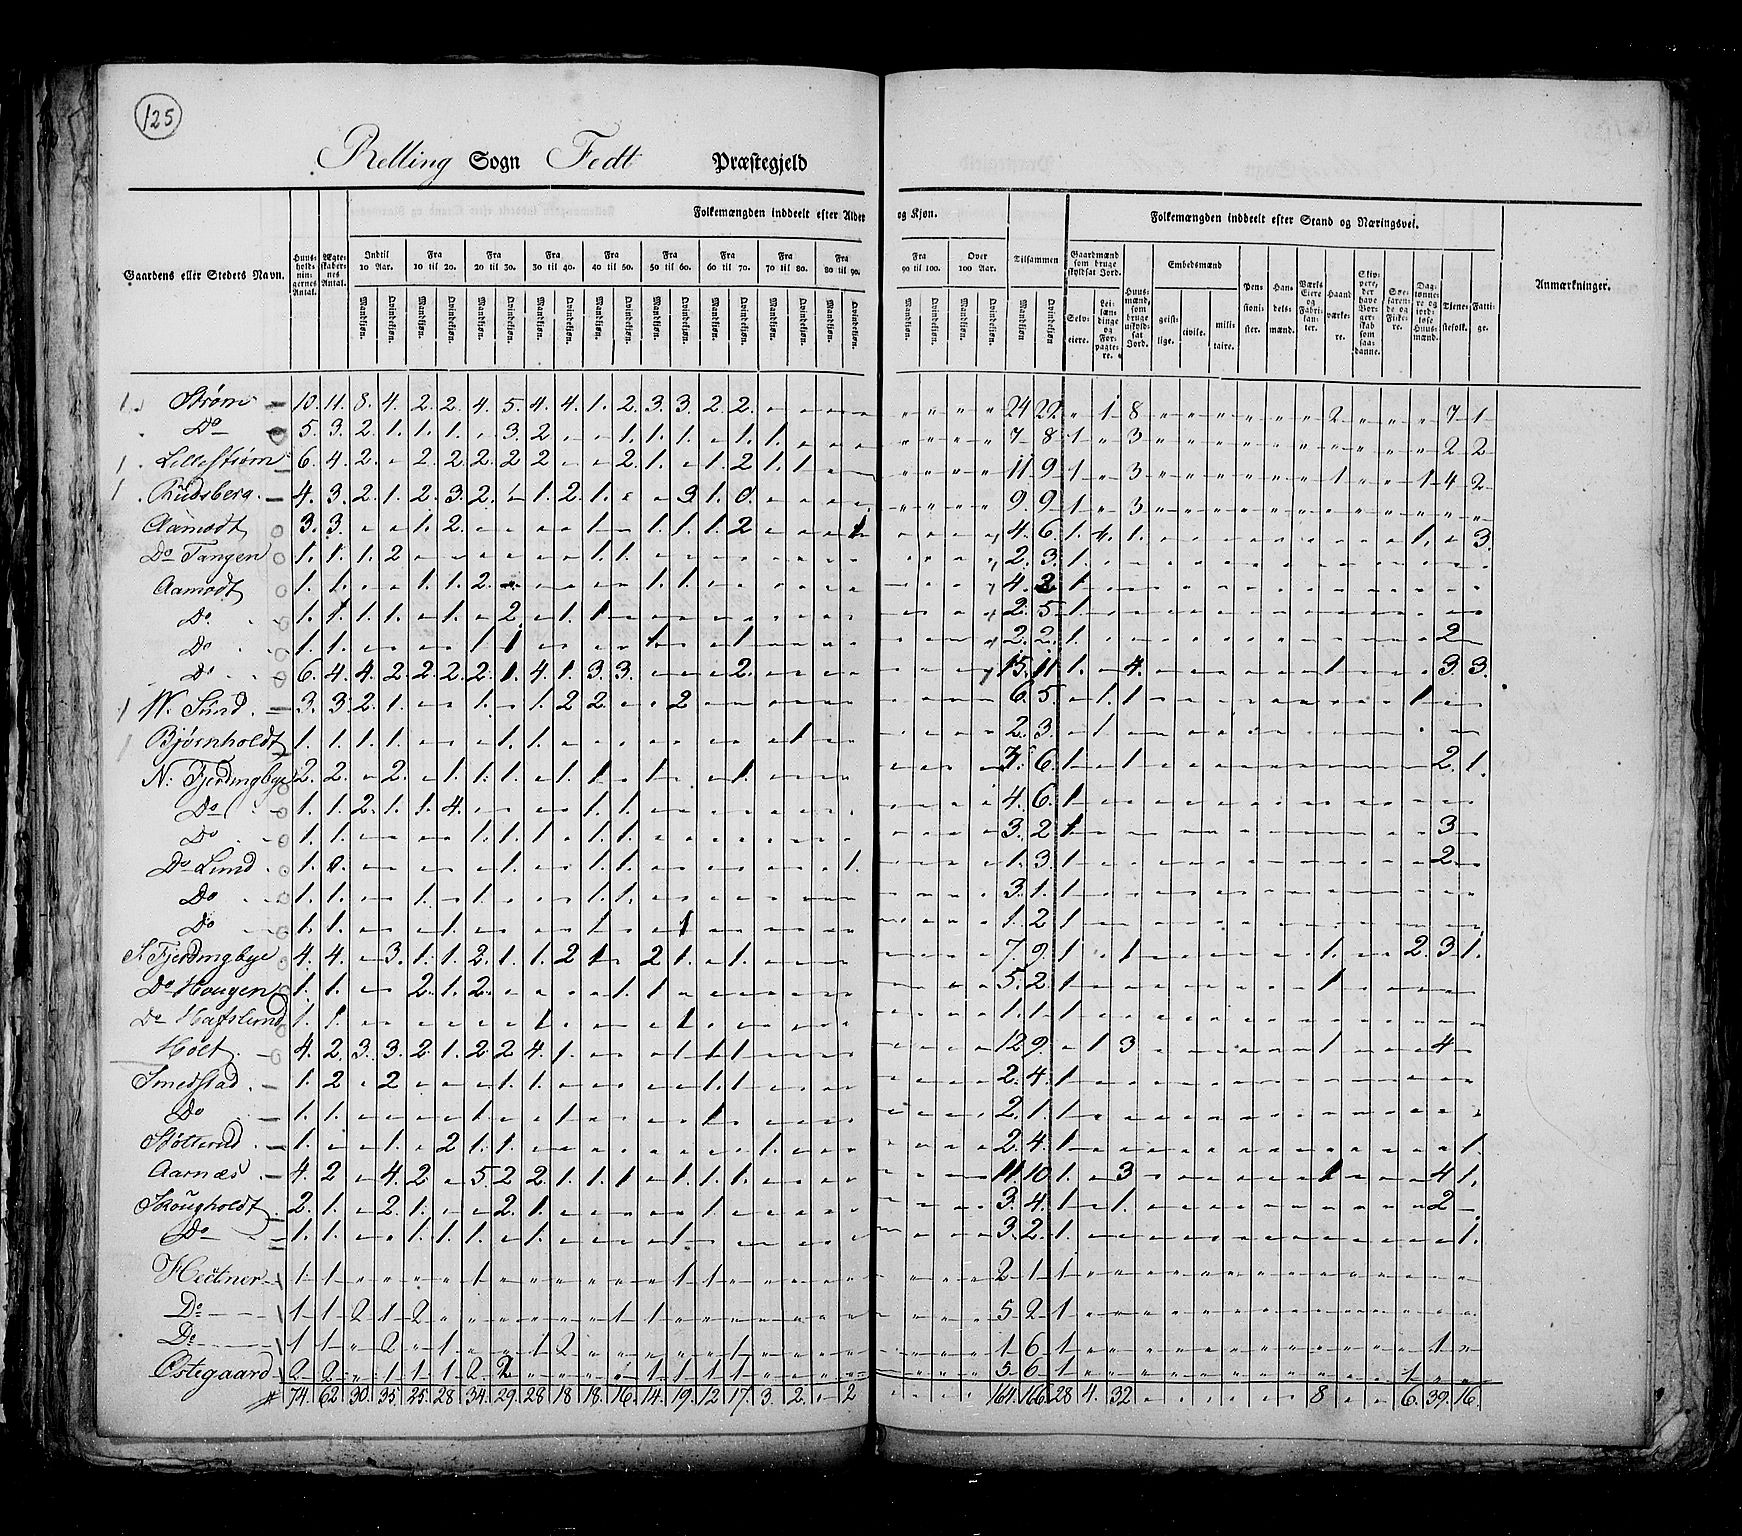 125
Relling Sogn Fedt Præstegjeld
Gaardens eller Stedets Navn. Huusholdningernes Antal. Ægteskabernes Antal. Folkemængden inddeelt efter Alder og Kjøn. Tilsammen Folkemængden inddeelt efter Stand og Næringsvei. Anmærkninger.
Indtil 10 Aar. Fra 10 til 20. Fra 20 til 30. Fra 30 til 40. Fra 40 til 50. Fra 50 til 60. Fra 60 til 70. Fra 70 til 80. Fra 80 til 90. Fra 90 til 100. Over 100 Aar.
Mandkjøn. Qvindekjøn.
Gaardmænd som bruge skyldsat Jord. Selveiere. Leilændinge og Forpagtere. Huusmænd, som bruge uskyldsat Jord. Embedsmænd geistlige. civile. militaire. Pensionister. Handelsmænd. Værks Eiere og Fabrikanter. Haandværkere. Skippere, der have Borgerskab som saadanne. Søefarende og Fiskere. Daglønnere og jordløse Huusmænd. Tjenestefolk. Fattige.
Strøm 10. 11. 8. 4. 2. 2. 4. 5. 4. 4. 1. 2. 3. 3. 2 2. 24 22 1 8 2 7 1
Do 5. 3. 2. 1. 1. 1. 3. 2 1. 1. 1. 1. 1. 7 8 1 3 2 2
Lillestrøm 6. 4. 2. 2. 2. 2. 2 2 2. 1. 1. 2 1. 1 11 9 1 3 1 1 4 2
Rudsberg 4. 3. 2. 1. 2. 3. 2 1. 2. 1. 3 1. 0. 9. 9 1 3
Aamodt 3. 3. 1. 2. 1 1. 1. 1. 2 1 4. 6. 1. 1. 1. 1. 3.
Do Tangen 1. 1. 1. 2 1. 1. 2. 3. 1.
Aamodt 1. 1. 1. 1. 2. 1. 1. 4. 2 1
Do 1. 1. 1. 1. 1. 2 1. 1 2. 5. 1.
Do 1. 1. 1 1 1. 1 2. 2. 1. 2
Do 6. 4. 4. 2 2. 2. 2. 1. 4. 1. 3. 3. 2. 15. 11 1. 4. 1. 3. 3.
W. Sund 3. 3. 2. 1. 1. 1. 2 2. 2 6. 5. 1. 1 1
Bjørnholdt 1. 1. 1. 1. 1. 1. 1 2. 3. 1
N: Fjerdingbye 2. 2. 2. 1. 1. 1. 1. 1. 1. 1. 7. 6. 1 1 2. 1.
Do 1. 1. 2. 1. 1. 4. 1. 1. 4. 6. 1
Do 1. 1. 1. 1. 1. 1. 1. 3. 2. 1 3
Do Lund 1. 1. 1. 1. 1. 1. 3. 1 2
Do 1. 1. 1. 1. 1. 1. 3. 1. 1
Do 1. 1. 1. 1 1 1. 2 1
S Fjerdingbye 4. 4. 3. 1. 1. 2. 1. 1. 2 1. 2 1. 1. 7. 9. 1 1 1. 2. 3 1.
Do Hougen 1. 1. 2. 1. 2. 1. 1. 5. 2. 1 1
Do Hafslund 1. 1. 1. 1. 1. 1. 1
Holt 4. 2. 3. 3. 2. 1. 2. 2 4. 1. 1. 1 1 12 9. 1 3 1 4
Smedstad 1. 2 2 1. 1. 1. 1. 2. 4. 1
Do 1. 1. 1. 1 1 2. 1. 1
Støtterud 1. 1. 2 1. 1. 1. 2. 4. 1 1.
Aarnæs 4. 2 4. 2 5. 2 2. 1. 1. 1 1. 1. 1. 11 10 1. 3 1 4 1.
Skougholdt 2. 1. 2. 1. 2. 1. 1. 3. 4. 1 1. 2
Do 1. 1. 1. 1. 1. 1. 1. 3. 2. 1. 1.
Heitner 1 1 1 1 1 2 1 1
Do 1 1 2 1 2 1 1 5 2 1
Do 1 1 2 1 1 2 1 1 6 1 1
Østegaard 2 2 1 1 1 2 2 1 1 1 1 5 6 1 1
74 62 30. 35. 25. 28 34. 29. 28 18 18. 16. 14. 19. 12 17. 3. 2. 2 164. 166 28 4. 32 8 6. 39. 16.